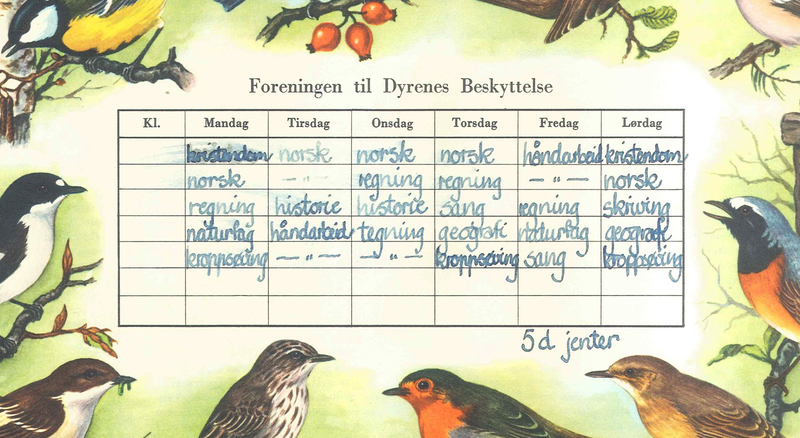 Foreningen til Dyrenes Beskyttelse
Kl. Mandag Tirsdag Onsdag Torsdag Fredag Lørdag
kristendom norsk norsk norsk håndarbeid kristendom
norsk — " — regning regning — " — norsk
regning historie historie sang regning skriving
naturfag håndarbeid tegning geografi naturfag geografi
kroppsøving — " — — " — kroppsøving sang kroppsøving
5 d jenter